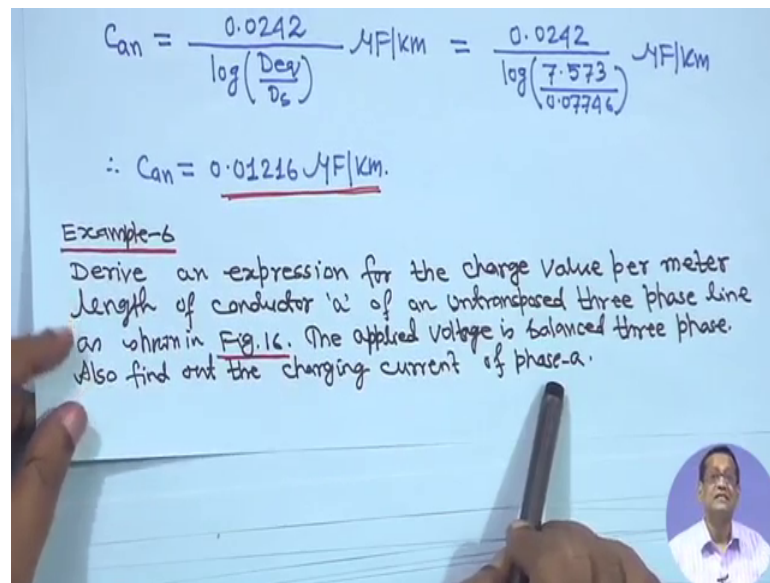 Can = 0.0242 / log(Deq/Ds) μF/km = 0.0242 / log(7.573/0.07746) μF/km
∴ Can = 0.01216 μF/km.
Example-6
Derive an expression for the charge value per meter
length of conductor 'a' of an untransposed three phase line
as shown in Fig.16. The applied voltage is balanced three phase.
Also find out the charging current of phase-a.